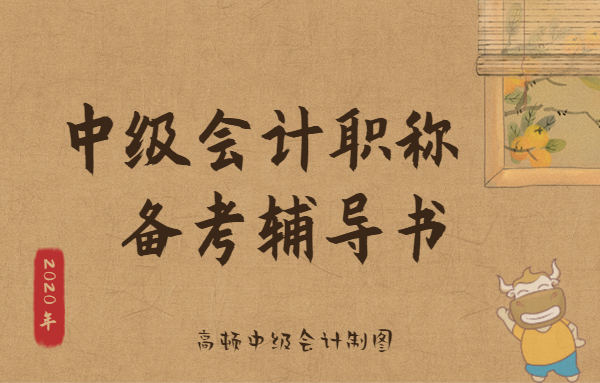 中级会计职称
备考辅导书
2020年
高顿中级会计制图